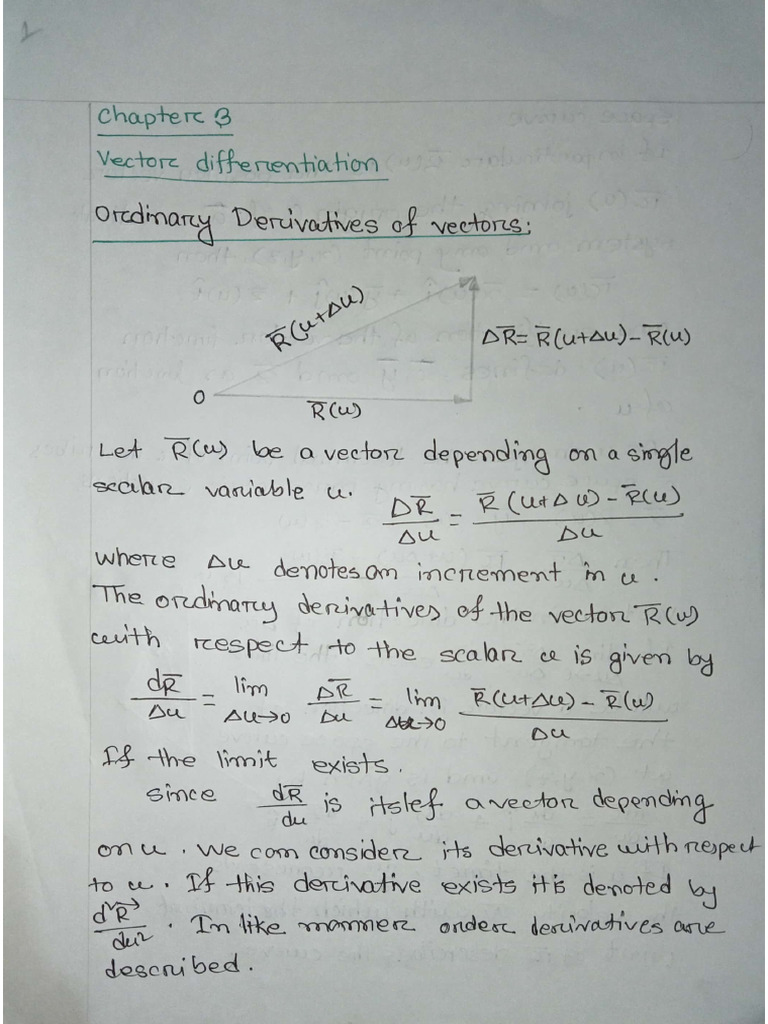 1
Chapter 3
Vector differentiation
Ordinary Derivatives of vectors:
R̅(u+Δu)
ΔR̅ = R̅(u+Δu) – R̅(u)
O
R̅(u)
Let R̅(u) be a vector depending on a single
scalar variable u. ΔR̅/Δu = R̅(u+Δu) – R̅(u)/Δu
where Δu denotes an increment in u.
The ordinary derivatives of the vector R̅(u)
with respect to the scalar u is given by
dR̅/Δu = lim Δu→0 ΔR̅/Δu = lim Δu→0 R̅(u+Δu) – R̅(u)/Δu
If the limit exists.
since dR̅/du is itslef a vector depending
on u. We can consider its derivative with respect
to u. If this derivative exists it is denoted by
d²R⃗/du². In like manner order derivatives are
described.